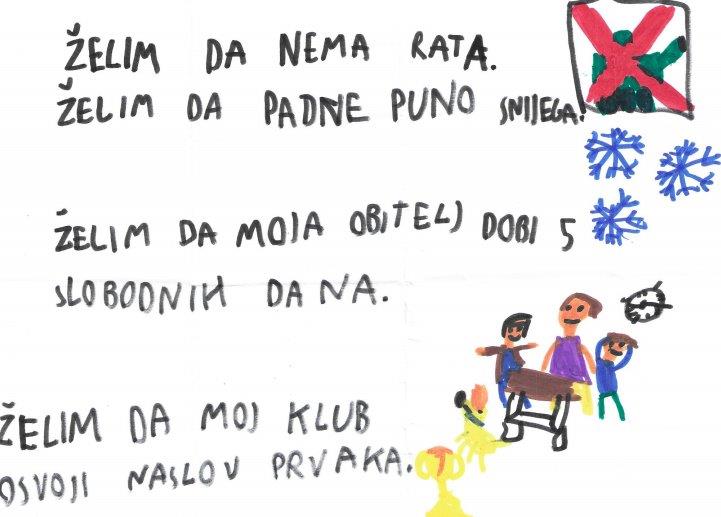 ŽELIM DA NEMA RATA.
ŽELIM DA PADNE PUNO SNIJEGA!
ŽELIM DA MOJA OBITELJ DOBI 5
SLOBODNIH DANA.
ŽELIM DA MOJ KLUB
OSVOJI NASLOV PRVAKA.